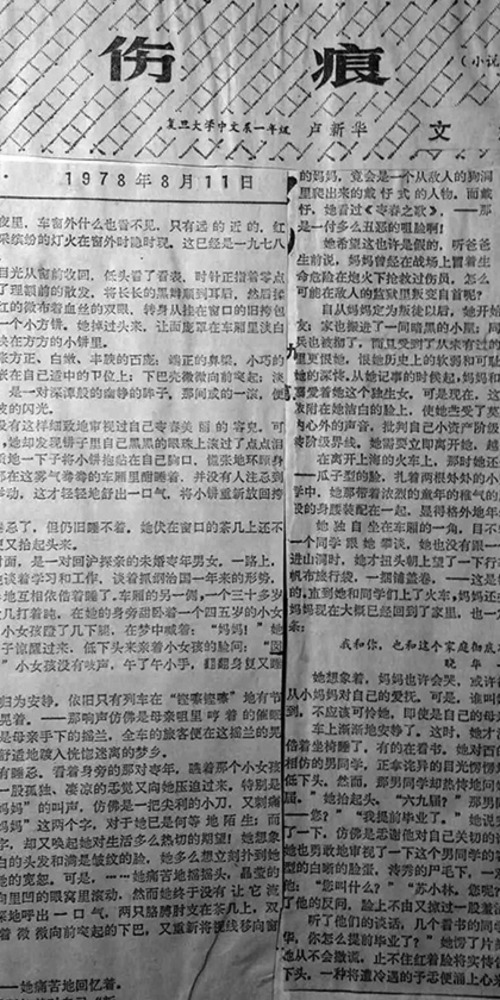 伤痕
(小说
复旦大学中文系一年级 卢新华 文
1978年8月11日
夜里，车窗外什么也看不见，只有远的近的，红
采缤纷的灯火在窗外时隐时现。这已经是一九七八
目光从窗前收回，低头看了看表，时针正指着零点
了理额前的散发，将长长的黑辫顺到耳后，然后揉
红的微布着血丝的双眼，转身从挂在窗口的旧挎包
一个小方镜。她掉过头来，让面庞罩在车厢里淡白
映在方方的小镜里。
张方正、白嫩、丰腴的面庞：端正的鼻梁，小巧的
嵌在自己适中的部位上；下巴壳微微向前突起；淡
是一对深潭般的幽静的眸子，那间或的一滚，便
波的闪光。
没有这样细致地审视过自己青春美丽的容貌。可
，她却发现镜子里自己黑黑的眼珠上滚过了点点泪
质地一下子将小镜抱贴在自己胸口，慌张地环顾身
都在这雾气腾腾的车厢里酣睡着，并没有人注意到
举动，这才轻轻地舒出一口气，将小镜重新放回挎
倦了，但仍旧睡不着。她伏在窗口的茶几上还不
便又抬起头来。
对面，是一对回沪探亲的未婚青年男女。一路上，
地谈着学习和工作，谈着抓纲治国一年来的形势，
地互相依偎着睡了。车厢的另一侧，一个三十多岁
几打着盹，在她的身旁甜卧着一个四五岁的小女
小女孩蹬了几下腿，在梦中喊着：“妈妈！”她
子惊醒过来，低下头来亲着小女孩的脸问：“囡
”小女孩没有吱声，舞了舞小手，翻翻身复又睡
归为安静，依旧只有列车在“铿嚓铿嚓”地有节
晃着。——那响声仿佛是母亲嘴里哼着的催眠
是母亲手下的摇篮。全车的旅客便在这摇篮的晃
舒适地跋入恍惚迷离的梦乡。
有睡意。看着身旁的那对青年，瞧着那个小女孩
一股孤独、凄凉的感觉又向她压迫过来。特别是
妈妈”的叫声，仿佛是一把尖利的小刀，又刺痛
妈妈”这两个字，对于她已是何等地陌生；而
字，却又唤起她对生活多么热切的期望！她想象
白的头发和满是皱纹的脸，她多么想立刻扑到她
她的宽恕。可是，……她痛苦地摇摇头，晶莹的
向里凹的眼窝里滚动，然而她终于没有让它流
深地呼出一口气，两只胳膊肘支在茶几上，双
着微微向前突起的下巴，又重新将视线移向窗
——她痛苦地回忆着。
的妈妈，竟会是一个从敌人的狗洞
里爬出来的戴仔式的人物。而戴
仔，她看过《青春之歌》，——那
是一付多么丑恶的咀脸啊！
她希望这也许是假的，听爸爸
生前说，妈妈曾经在战场上冒着生
命危险在炮火下抢救过伤员，怎么
可能在敌人的监狱里叛变自首呢？
自从妈妈定为叛徒以后，她开始
友；家也搬进了一间暗黑的小屋；同
兵也被彻了，而且受到了从来有过的
里更恨她，恨她历史上的软弱和可耻
她的深情。从她记事的时候起，妈妈和
喜爱着她这个独生女。可是现在，这
般附在她洁白的脸上，使她蒙受了莫
内心外的声音，批判自己小资产阶级
清阶级界线。她需要立即离开她，越
在离开上海的火车上，那时她还
——瓜子型的脸，扎着两根短短的小
学中，她那带着浓烈的童年的稚气的
设的身腰装配在一起，显得格外地年
她独自坐在车厢的一角，目不
一个同学跟她攀谈，她也没有跟一
进山洞时，她才扭头朝上望了一下行李
帆布旅行袋，一捆铺盖卷。——这是
的。直到她和同学们上了火车，妈妈还
妈妈现在大概已经回到了家里，也一定
条：
我和你，也和这个家庭彻底
晓华
她想象着，妈妈也许会哭，或许
从小妈妈对自己的爱抚。可是，谁叫她
到，不应该可怜她，即使是自己的母亲
车上渐渐地安静了。这时，她才
借着坐椅睡了，有的在看书。她对西的
相仿的男同学，正拿诧异的目光愣愣
低下头。然而，那男同学却热情地问她
届。”她抬起头。“六九届？”那男
——您？”“我提前毕业了。”她说完
了一下，仿佛是感谢他对自己关切的
她也勇敢地审视了一下这个男同学的
型的白晰的脸蛋，清秀的眉毛下，一对
他：“您叫什么？”“苏小林。您呢？
了他的反问，脸上不由又掠过一股羞
听了他们的谈话，几个看书的同学
华，你怎么提前毕业了？”她愣了片
她从不会撒谎。止不住红着脸将实情
下头，一种将遭冷遇的予感便涌上心来